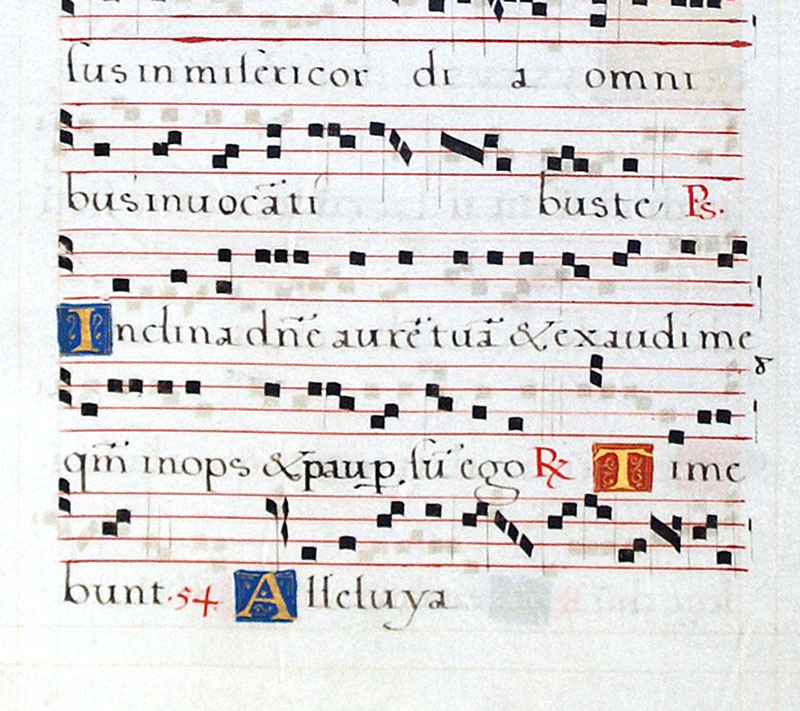 sus in misericor di a omni
bus inuocãti buste Ps.
Inclina dñe aurẽ tuã & exaudi me
qm̃ inops & paup̲ sũ ego R Time
bunt. 54 Alleluya